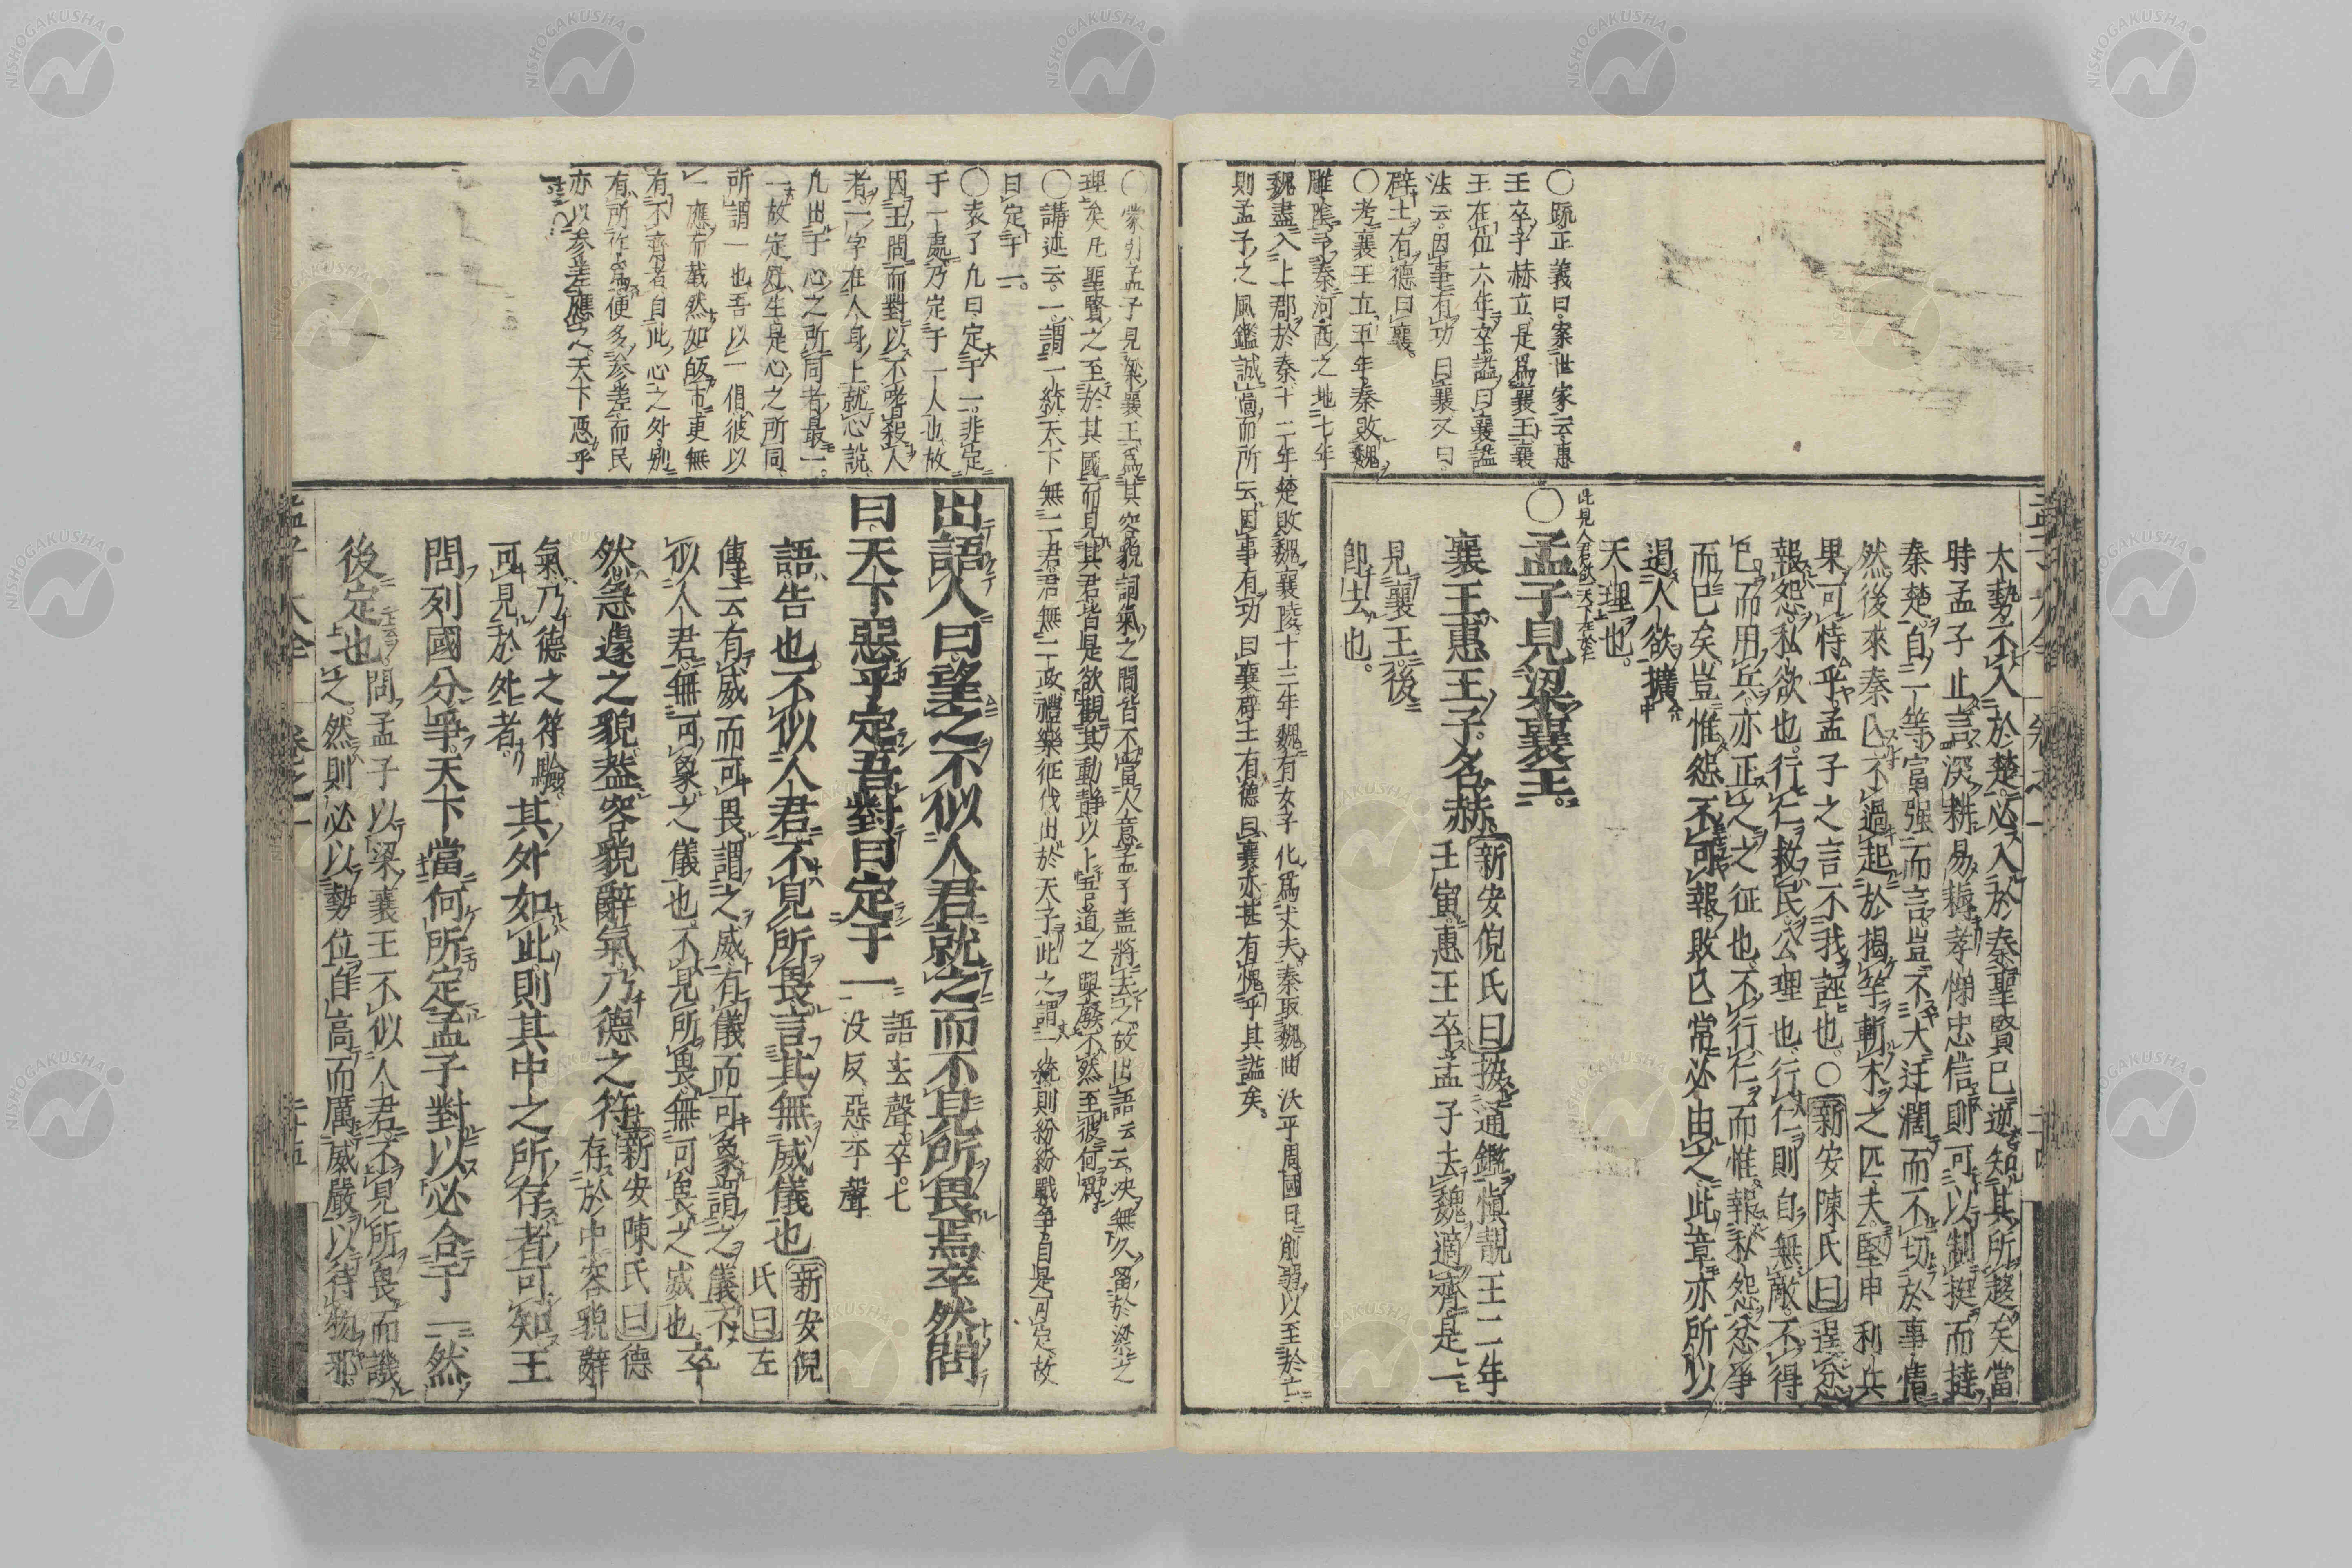 〇疏正義曰案世家云惠
王卒子赫立是爲襄王襄
王在位六年卒謚曰襄謚
法云因事有功曰襄又曰
辟土有德曰襄
〇考襄王立五年秦敗魏
雕陰予秦河西之地七年
魏盡入上郡於秦十二年楚敗魏襄陵十三年魏有女子化爲丈夫秦取魏曲沃平周國日削弱以至於亡
則孟子之風鑑誠當而所云因事有功曰襄辟土有德曰襄亦甚有愧乎其謚矣
太勢不入於楚必入於秦聖賢已逆知其所趨矣當
時孟子止言深耕易耨孝悌忠信則可以制挺而撻
秦楚自一等富强而言豈不大迂濶而不切於事情
然後來秦亡不過起於揭竿斬木之匹夫堅甲利兵
果可恃乎孟子之言不我誣也〇新安陳氏曰逞忿
報怨私欲也行仁救民公理也行仁則自無敵不得
已而用兵亦正之之征也不行仁而惟報私怨忿爭
而已矣豈惟怨不可報敗亡常必由之此章亦所以
遏人欲擴
天理也
此見人君欲一天下在於仁
〇孟子見梁襄王
襄王惠王子名赫
新安倪氏曰按通鑑愼靚王二年
壬寅惠王卒孟子去魏適齊是一
見襄王後
卽去也
〇蒙引孟子見梁襄王爲其容貌詞氣之間皆不當人意孟子盖將去之故出語云云決無久留於梁之
理矣凡聖賢之至於其國而見其君皆是欲觀其動靜以卜吾道之興廢不然至彼何爲
〇講述云一謂一統天下無二君君無二政禮樂征伐出於天子此之謂一統則紛紛戰爭自是可定故
曰定于一
〇袁了凡曰定于一非定
于一處乃定于一人也故
因王問而對以不嗜殺人
者一字在人身上就心說
凡出于心之所同者最一
一故定好生是心之所同
所謂一也吾以一倡彼以
一應市截然如皈市更無
有不齊者自此心之外別
有所作爲便多參差而民
亦以參差應之天下惡乎
出語人曰望之不似人君就之而不見所畏焉卒然問
曰天下惡乎定吾對曰定于一
語去聲卒七
没反惡平聲
語告也不似人君不見所畏言其無威儀也
新安倪
氏曰左
傳云有威而可畏謂之威有儀而可象謂之儀不
似人君無可象之儀也不見所畏無可畏之威也
卒
然急遽之貌蓋容貌辭氣乃德之符
新安陳氏曰德
存於中容貌辭
氣乃德之符驗
可見於外者
其外如此則其中之所存者可知王
問列國分爭天下當何所定孟子對以必合于一然
後定也
問孟子以梁襄王不似人君不見所畏而譏
之然則必以勢位自高而厲威嚴以待物邪
孟子大全 卷之一